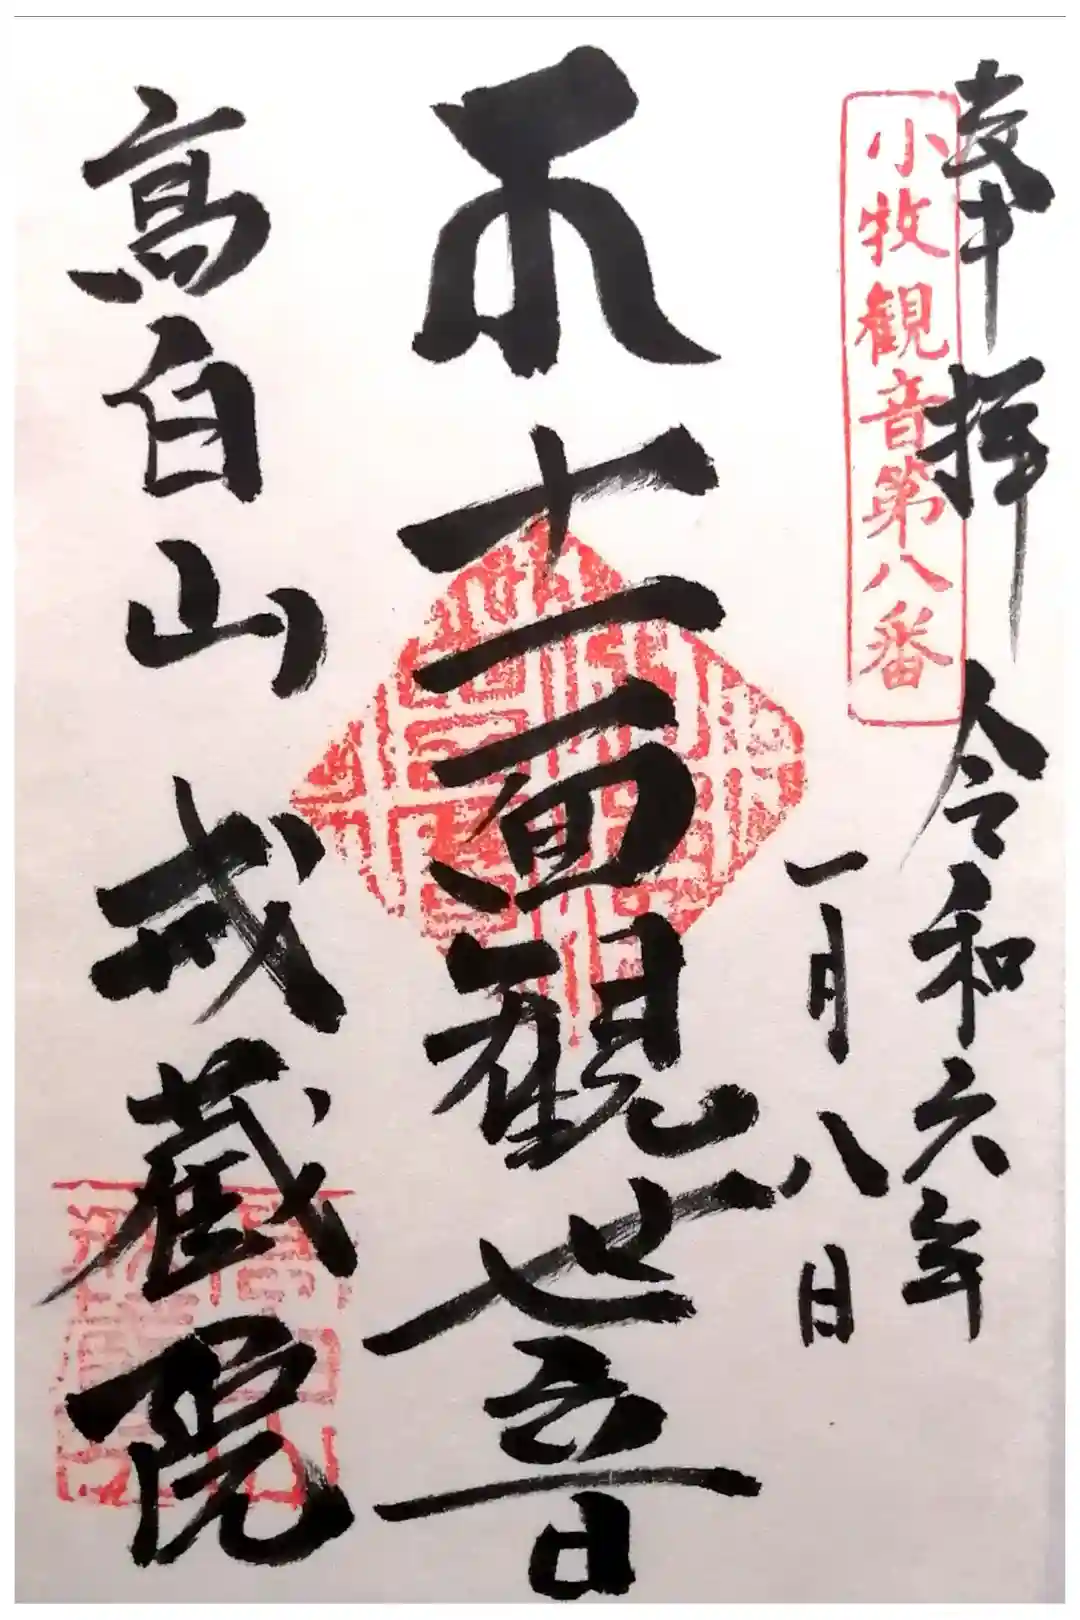 奉拝 令和六年
一月八日
小牧観音第八番
十一面観世音
高白山 戒蔵院